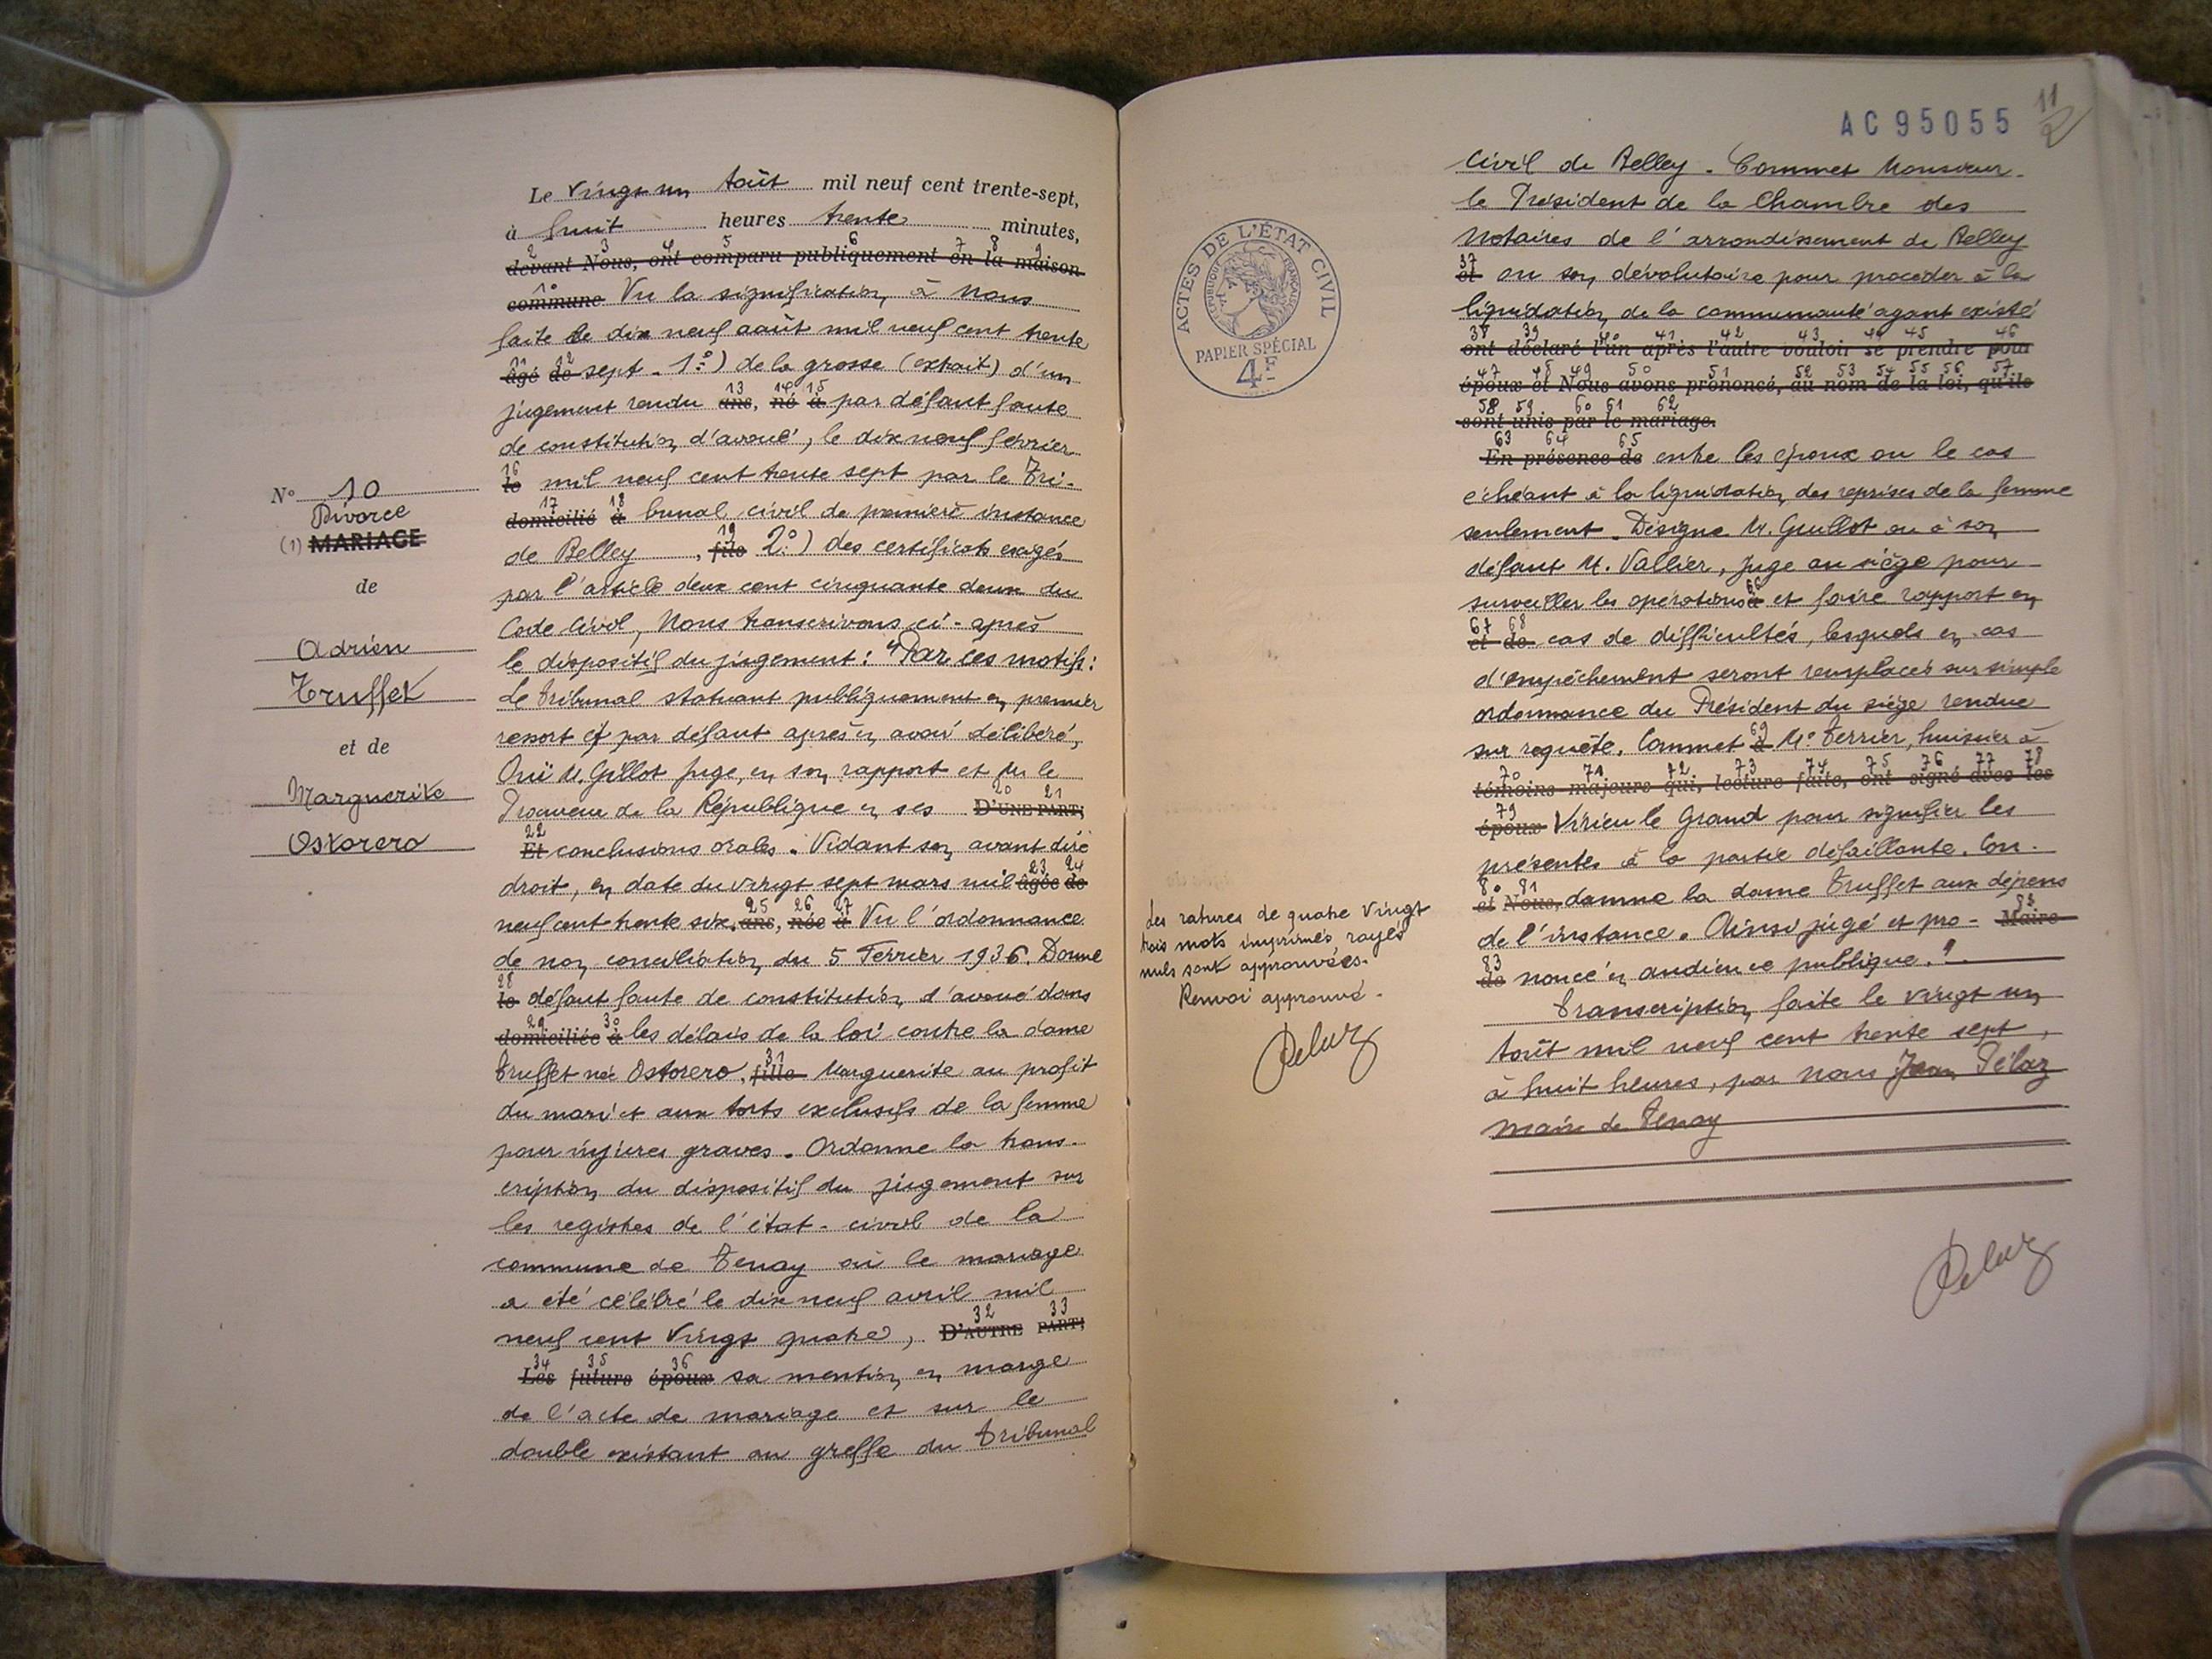 Le vingt un Août mil neuf cent trente-sept,
à huit heures trente minutes,
2 3 4 5 6 7 8 9
devant Nous, ont comparu publiquement en la maison
10
commune Vu la signification à nous
faite le dix neuf août mil neuf cent trente
11 12
âgé de sept. 1º) de la grosse (extrait) d'un
13 14 15
jugement rendu ans, né à par défaut faute
de constitution d'avoué, le dix neuf février
16
le mil neuf cent trente sept par le Tri-
17 18
domicilié à bunal civil de première instance
19
de Belley, fils 2º) des certificats exigés
par l'article deux cent cinquante deux du
Code Civil, Nous transcrivons ci-après
le dispositif du jugement: "Par ces motifs:
Le tribunal statuant publiquement en premier
ressort et par défaut après en avoir délibéré,
Ouï M. Gillot Juge, en son rapport et M. le
20 21
Procureur de la République en ses D'UNE PART;
22
Et conclusions orales. Vidant son avant dire
23 24
droit, en date du vingt sept mars mil âgée de
25 26 27
neuf cent trente six, ans, née à Vu l'ordonnance
de non conciliation du 5 Février 1936. Donne
28
le défaut faute de constitution d'avoué dans
29 30
domiciliée à les délais de la loi contre la dame
31
Truffet née Ostorero, fille Marguerite au profit
du mari et aux torts exclusifs de la femme
pour injures graves. Ordonne la trans-
cription du dispositif du jugement sur
les registres de l'état-civil de la
commune de Tenay où le mariage
a été célébré le dix neuf avril mil
32 33
neuf cent vingt quatre, D'AUTRE PART;
34 35 36
Les futurs époux sa mention en marge
de l'acte de mariage et sur le
double existant au greffe du tribunal
Nº 10
Divorce
(1) MARIAGE
de
Adrien
Truffet
et de
Marguerite
Ostorero
ACTES DE L'ÉTAT CIVIL
RÉPUBLIQUE FRANÇAISE
PAPIER SPÉCIAL
4F
Les ratures de quatre vingt
trois mots imprimés rayés
nuls sont approuvées.
Renvoi approuvé.
Pelaz
AC 95055
11
2
Civil de Belley. Commet Monsieur
le Président de la Chambre des
Notaires de l'arrondissement de Belley
37
et ou son dévolutaire pour procéder à la
liquidation de la communauté ayant existé
38 39 40 41 42 43 44 45 46
ont déclaré l'un après l'autre vouloir se prendre pour
47 48 49 50 51 52 53 54 55 56 57
époux et Nous avons prononcé, au nom de la loi, qu'ils
58 59 60 61 62
sont unis par le mariage.
63 64 65
En présence de entre les époux ou le cas
échéant à la liquidation des reprises de la femme
seulement. Désigne M. Guillot ou à son
défaut M. Vallier, Juge au siège pour
66
surveiller les opérations à et faire rapport en
67 68
et de cas de difficultés, lesquels en cas
d'empêchement seront remplacés sur simple
ordonnance du Président du siège rendue
69
sur requête. Commet à Mº Terrier, huissier à
70 71 72 73 74 75 76 77 78
témoins majeurs qui, lecture faite, ont signé avec les
79
époux Virieu le Grand pour signifier les
présentes à la partie défaillante. Con-
80 81
et Nous, damne la dame Truffet aux dépens
82
de l'instance. Ainsi jugé et pro- Maire
83
de noncé en audience publique.
Transcription faite le vingt un
Août mil neuf cent trente sept,
à huit heures, par nous Jean Pélaz
maire de Tenay
Pelaz